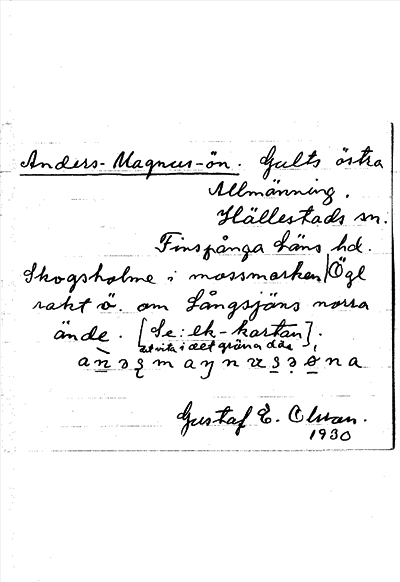 Anders-Magnus-ön. Gults östra
Allmänning.
Hällestads sn.
Finspånga läns hd.
Skogsholme i mossmarken Ögl
rakt ö. om Långsjöns norra
ände. [Se: ek-kartan].
det vita i det gröna där
Gustaf E. Olsson.
1930